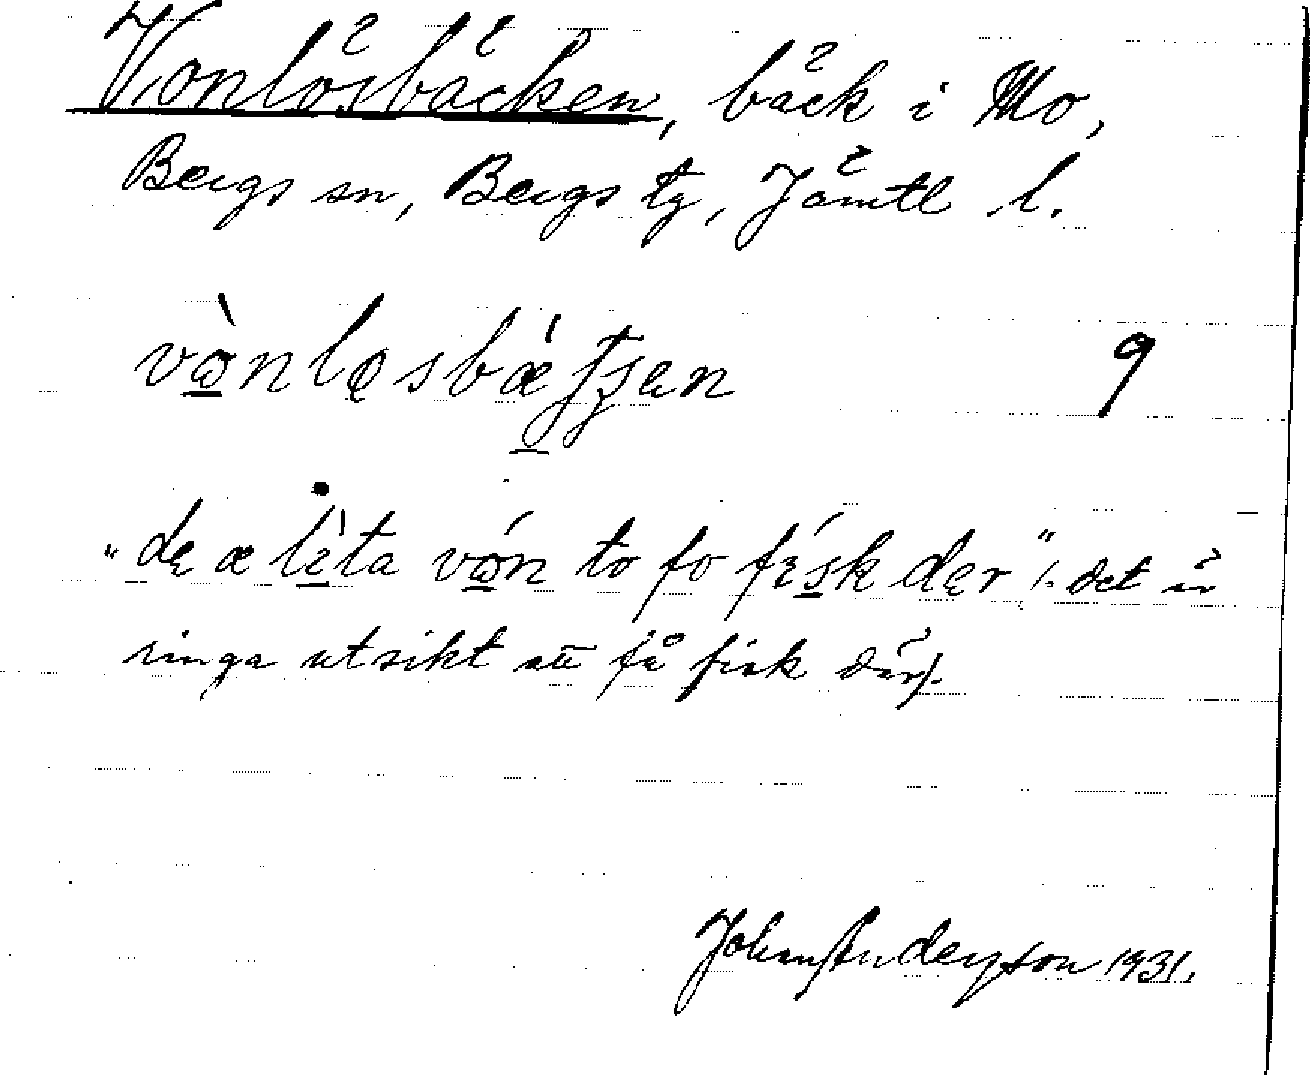 Vonlösbäcken, bäck i Mo,
Bergs sn, Bergs tg, Jämtl l.
vònløsbǽtʃen 9
"dę æ lìta vón to fo físk dęr" (. det är
ringa utsikt att få fisk där).
Johan Anderson 1931.